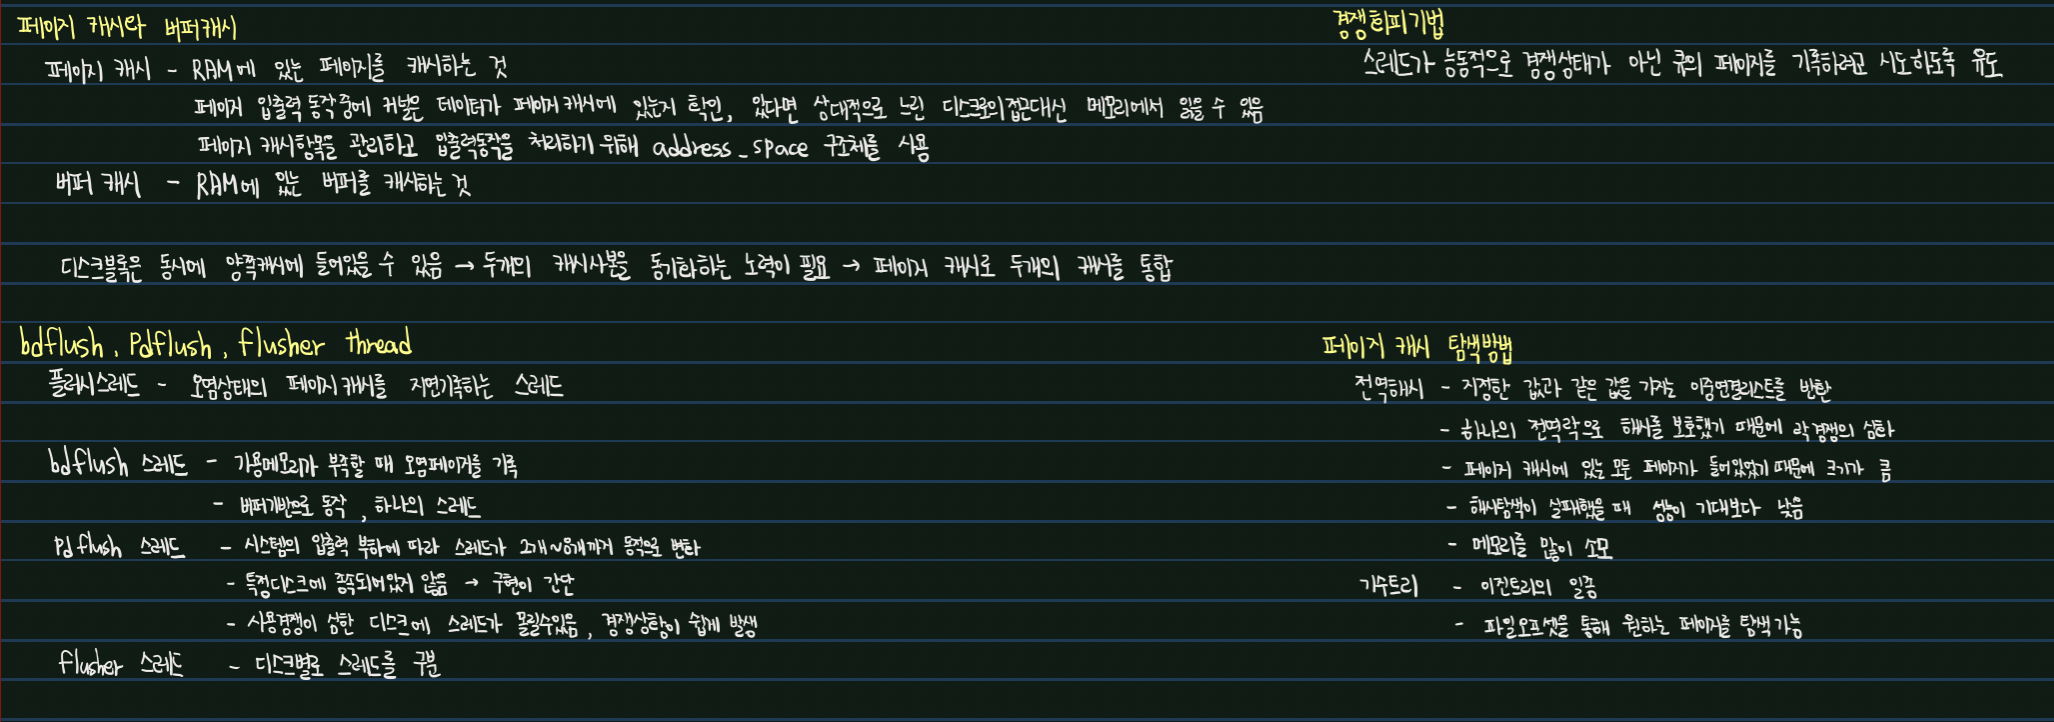 페이지 캐시와 버퍼캐시
페이지 캐시 - RAM에 있는 페이지를 캐시하는 것
페이지 입출력 동작중에 커널은 데이터가 페이지캐시에 있는지 확인, 있다면 상대적으로 느린 디스크로의접근대신 메모리에서 읽을 수 있음
페이지 캐시항목을 관리하고 입출력동작을 처리하기 위해 address_space 구조체를 사용
버퍼 캐시 - RAM에 있는 버퍼를 캐시하는 것
디스크블록은 동시에 양쪽캐시에 들어있을 수 있음 → 두개의 캐시사본을 동기화하는 노력이 필요 → 페이지 캐시로 두개의 캐시를 통합
경쟁회피기법
스레드가 능동적으로 경쟁상태가 아닌 큐의 페이지를 기록하려고 시도하도록 유도
bdflush, Pdflush, flusher thread
플러시스레드 - 오염상태의 페이지캐시를 지연기록하는 스레드
bdflush 스레드 - 가용메모리가 부족할 때 오염페이지를 기록
- 버퍼기반으로 동작, 하나의 스레드
Pdflush 스레드 - 시스템의 입출력 부하에 따라 스레드가 2개~8개까지 동적으로 변화
- 특정디스크에 종속되어있지 않음 → 구현이 간단
- 사용경쟁이 심한 디스크에 스레드가 몰릴수있음, 경쟁상황이 쉽게 발생
flusher 스레드 - 디스크별로 스레드를 구분
페이지 캐시 탐색방법
전역해시 - 지정한 값과 같은 값을 가지는 이중연결리스트를 반환
- 하나의 전역락으로 해시를 보호했기 때문에 락경쟁의 심화
- 페이지 캐시에 있는 모든 페이지가 들어있었기때문에 크기가 큼
- 해시탐색이 실패했을 때 성능이 기대보다 낮음
- 메모리를 많이 소모
기수트리 - 이진트리의 일종
- 파일오프셋을 통해 원하는 페이지를 탐색가능